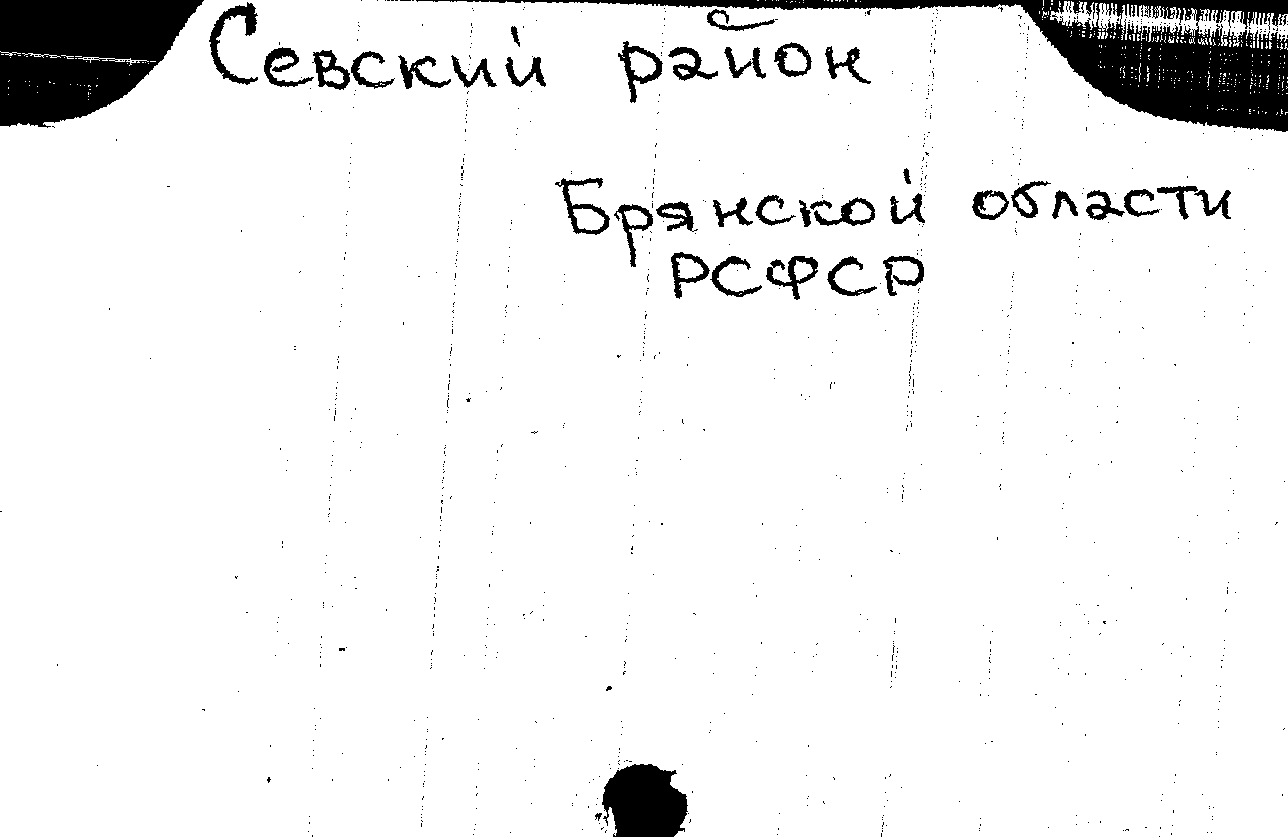 Севский район
Брянской области
РСФСР